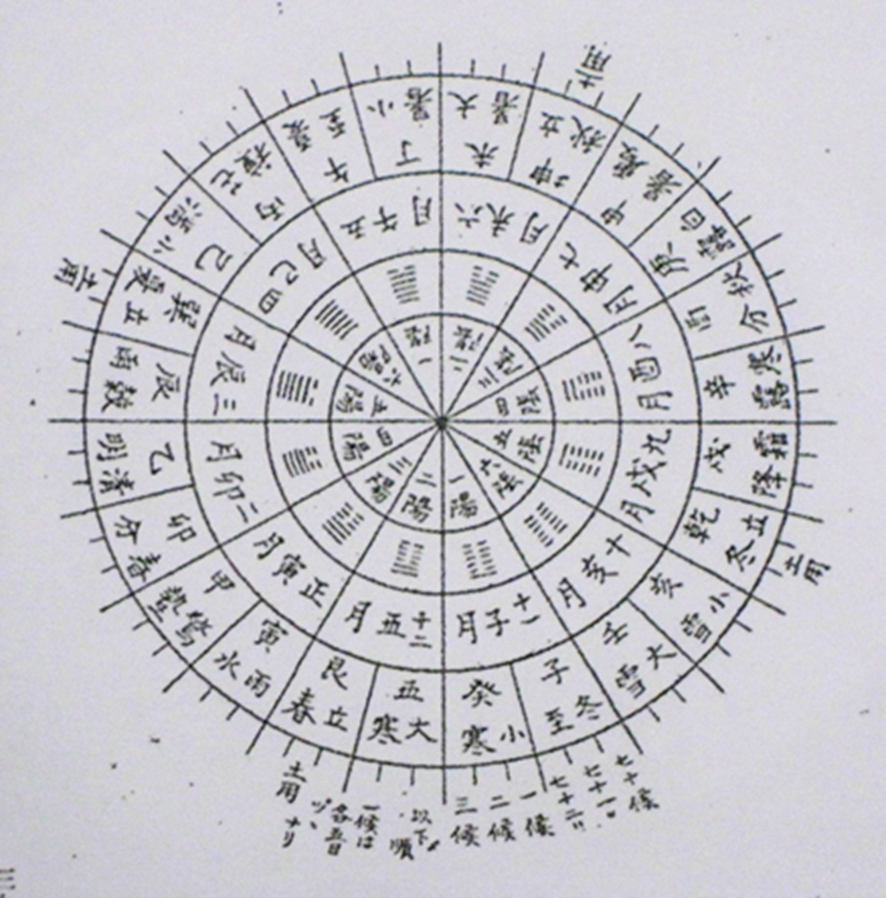 土用
土用
土用
土用
小寒
癸
大寒
丑
立春
艮
雨水
寅
驚蟄
甲
春分
卯
清明
乙
穀雨
辰
立夏
巽
小満
巳
芒種
丙
夏至
午
小暑
丁
大暑
未
立秋
坤
處暑
申
白露
庚
秋分
酉
寒露
辛
霜降
戌
立冬
乾
小雪
亥
大雪
壬
冬至
子
正寅月
二卯月
三辰月
四巳月
五午月
六未月
七申月
八酉月
九戌月
十亥月
十一子月
十二丑月
一陽
二陽
三陽
四陽
五陽
六陽
一陰
二陰
三陰
四陰
五陰
六陰
七十候
七十一〃
七十二〃
一候
二候
三候
以下順
一候は
各五日
ヅヽ
ナリ